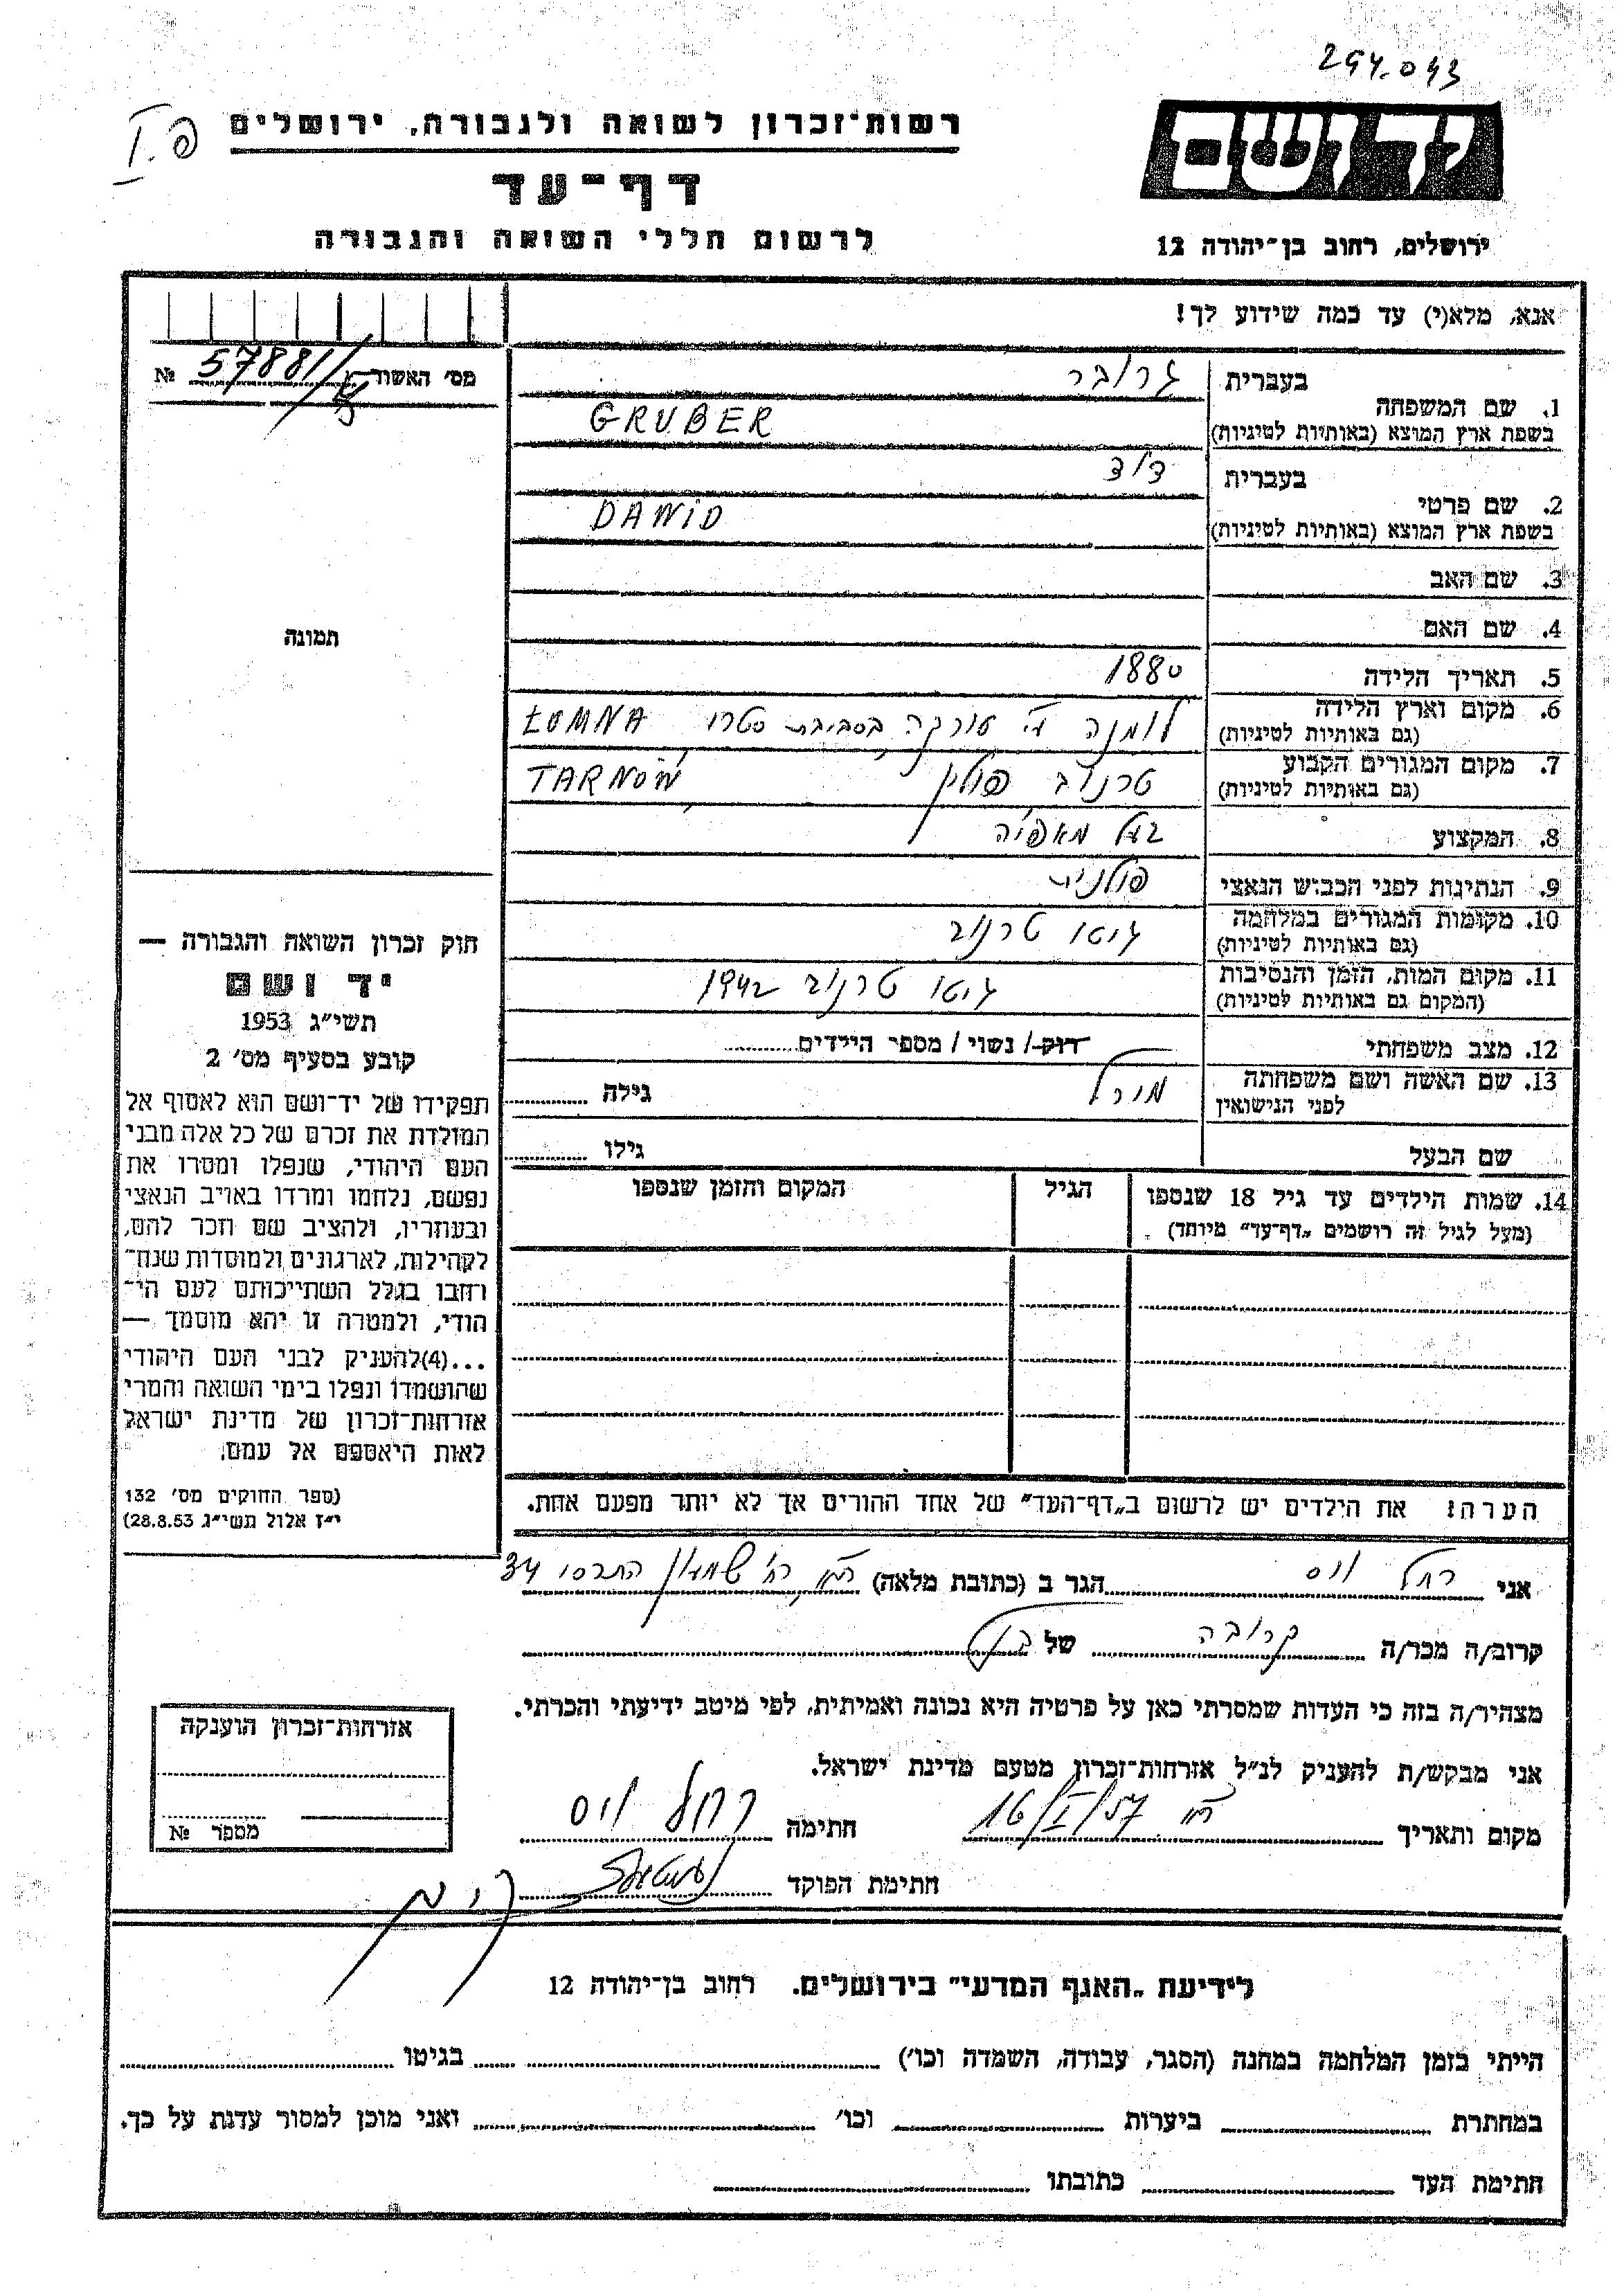 294.043
פ. I
רשות־זכרון לשואה ולגבורה, ירושלים
יד ושם
דף־עד
לרשום חללי השואה והגבורה
ירושלים, רחוב בן־יהודה 12
אנא, מלא(י) עד כמה שידוע לך!
מס' האשור
№ 57881/
בעברית גרובר
1. שם המשפחה
בשפת ארץ המוצא (באותיות לטיניות) GRUBER
בעברית דוד
2. שם פרטי
בשפת ארץ המוצא (באותיות לטיניות) DAWID
3. שם האב
4. שם האם
5. תאריך הלידה 1880
6. מקום וארץ הלידה
(גם באותיות לטיניות) לומנה ע"י טורקה בסביבת סטרי ŁOMNA
7. מקום המגורים הקבוע
(גם באותיות לטיניות) טרנוב פולין TARNÓW
8. המקצוע בעל מאפיה
9. הנתינות לפני הכבוש הנאצי פולנית
10. מקומות המגורים במלחמה
(גם באותיות לטיניות) גיטו טרנוב
11. מקום המות, הזמן והנסיבות
(המקום גם באותיות לטיניות) גיטו טרנוב 1942
12. מצב משפחתי רוק / נשוי / מספר הילדים
13. שם האשה ושם משפחתה
לפני הנישואין מורל גילה
שם הבעל גילו
14. שמות הילדים עד גיל 18 שנספו
(מעל לגיל זה רושמים "דף־עד" מיוחד).
הגיל
המקום והזמן שנספו
הערה! את הילדים יש לרשום ב"דף־העד" של אחד ההורים אך לא יותר מפעם אחת.
תמונה
חוק זכרון השואה והגבורה —
יד ושם
תשי"ג 1953
קובע בסעיף מס' 2
תפקידו של יד־ושם הוא לאסוף אל
המולדת את זכרם של כל אלה מבני
העם היהודי, שנפלו ומסרו את
נפשם, נלחמו ומרדו באויב הנאצי
ובעוזריו, ולהציב שם וזכר להם,
לקהילות, לארגונים ולמוסדות שנח־
רחבו בגלל השתייכותם לעם הי־
הודי, ולמטרה זו יהא מוסמך —
...(4)להעניק לבני העם היהודי
שהושמדו ונפלו בימי השואה והמרי
אזרחות־זכרון של מדינת ישראל
לאות היאספם אל עמם.
(ספר החוקים מס' 132
י"ז אלול תשי"ג 28.8.53)
אני רחל וייס הגר ב (כתובת מלאה) רח' שמעון התרסי 34
קרוב/ה מכר/ה קרובה של
מצהיר/ה בזה כי העדות שמסרתי כאן על פרטיה היא נכונה ואמיתית, לפי מיטב ידיעתי והכרתי.
אני מבקש/ת להעניק לנ"ל אזרחות־זכרון מטעם מדינת ישראל.
מקום ותאריך 16/I/57 חתימה רחל וייס
חתימת הפוקד
אזרחות־זכרון הוענקה
מספר №
לידיעת "האגף המדעי" בירושלים. רחוב בן־יהודה 12
הייתי בזמן המלחמה במחנה (הסגר, עבודה, השמדה וכו') בגיטו
במחתרת ביערות וכו' ואני מוכן למסור עדות על כך.
חתימת העד כתובתו